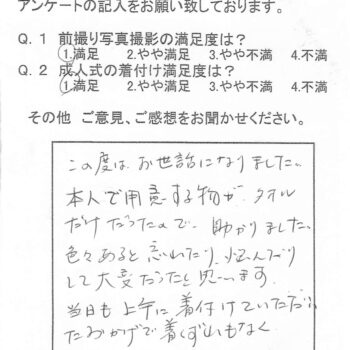 アンケートの記入をお願い致しております。
Q. 1 前撮り写真撮影の満足度は？
1.満足 2.やや満足 3.やや不満 4.不満
Q. 2 成人式の着付け満足度は？
1.満足 2.やや満足 3.やや不満 4.不満
その他 ご意見、ご感想をお聞かせください。
この度は、お世話になりました。
本人で用意する物が、タオル
だけだったので、助かりました。
色々あると忘れたり、悩んだり
して大変だったと思います。
当日も上手に着付けていただい
たおかげで着くずれもなく、